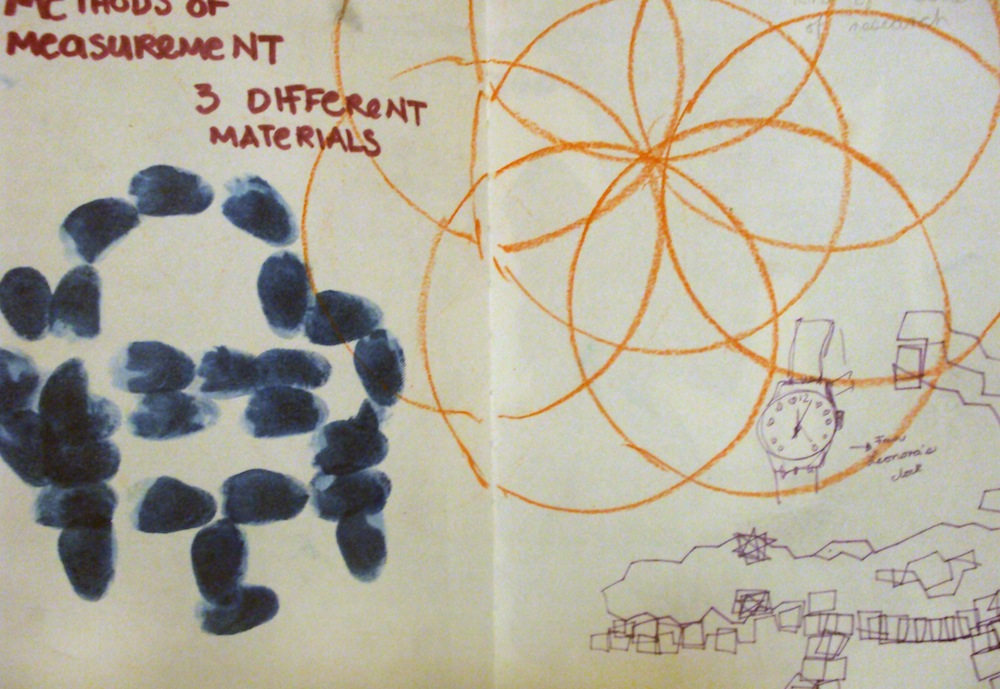 METHODS OF
MEASUREMENT
3 DIFFERENT
MATERIALS
of research
12
clock